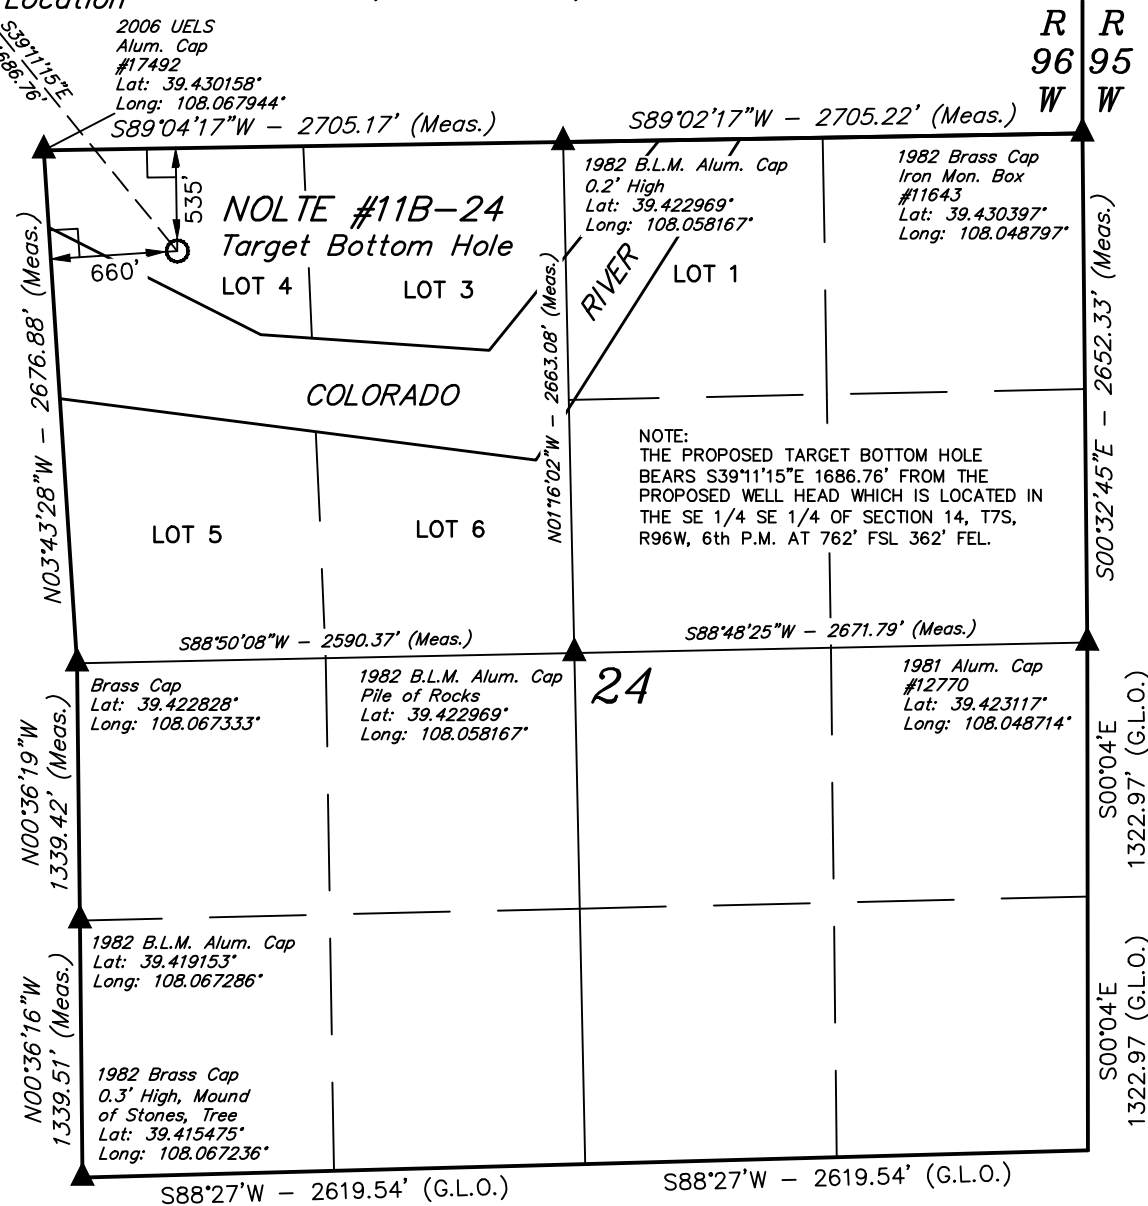 Location
S39°11'15"E
1686.76'
2006 UELS
Alum. Cap
#17492
Lat: 39.430158°
Long: 108.067944°
R R
96 95
W W
S89°04'17"W – 2705.17' (Meas.)
S89°02'17"W – 2705.22' (Meas.)
535'
660'
NOLTE #11B–24
Target Bottom Hole
LOT 4
LOT 3
1982 B.L.M. Alum. Cap
0.2' High
Lat: 39.422969°
Long: 108.058167°
1982 Brass Cap
Iron Mon. Box
#11643
Lat: 39.430397°
Long: 108.048797°
RIVER
LOT 1
COLORADO
N03°43'28"W – 2676.88' (Meas.)
N01°16'02"W – 2663.08' (Meas.)
S00°32'45"E – 2652.33' (Meas.)
NOTE:
THE PROPOSED TARGET BOTTOM HOLE
BEARS S39°11'15"E 1686.76' FROM THE
PROPOSED WELL HEAD WHICH IS LOCATED IN
THE SE 1/4 SE 1/4 OF SECTION 14, T7S,
R96W, 6th P.M. AT 762' FSL 362' FEL.
LOT 5
LOT 6
S88°50'08"W – 2590.37' (Meas.)
S88°48'25"W – 2671.79' (Meas.)
Brass Cap
Lat: 39.422828°
Long: 108.067333°
1982 B.L.M. Alum. Cap
Pile of Rocks
Lat: 39.422969°
Long: 108.058167°
24
1981 Alum. Cap
#12770
Lat: 39.423117°
Long: 108.048714°
N00°36'19"W
1339.42' (Meas.)
S00°04'E
1322.97' (G.L.O.)
1982 B.L.M. Alum. Cap
Lat: 39.419153°
Long: 108.067286°
N00°36'16"W
1339.51' (Meas.)
S00°04'E
1322.97 (G.L.O.)
1982 Brass Cap
0.3' High, Mound
of Stones, Tree
Lat: 39.415475°
Long: 108.067236°
S88°27'W – 2619.54' (G.L.O.)
S88°27'W – 2619.54' (G.L.O.)